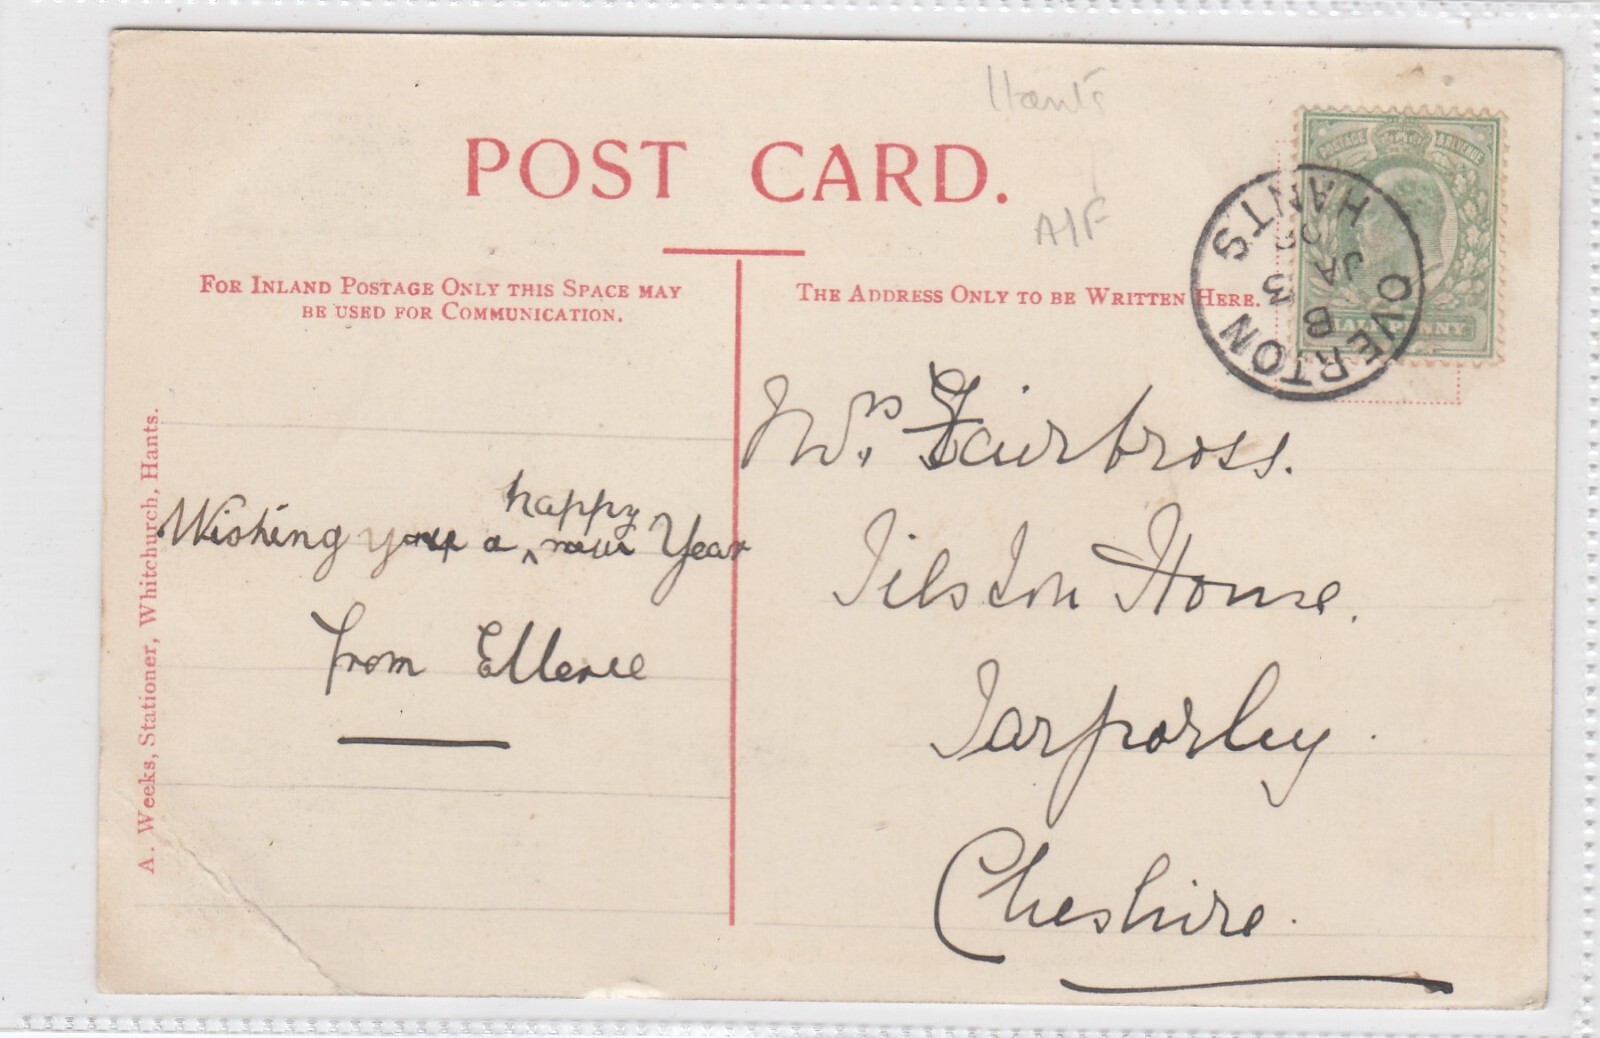 Hants
POST CARD.
A/F
FOR INLAND POSTAGE ONLY THIS SPACE MAY
BE USED FOR COMMUNICATION.
THE ADDRESS ONLY TO BE WRITTEN HERE.
POSTAGE REVENUE
HALFPENNY
OVERTON
HANTS
B
JA 3
A. Weeks, Stationer, Whitchurch, Hants.
Wishing you a happy new Year
from
Mrs. Fairbross.
Tilston House,
Tarporley.
Cheshire.